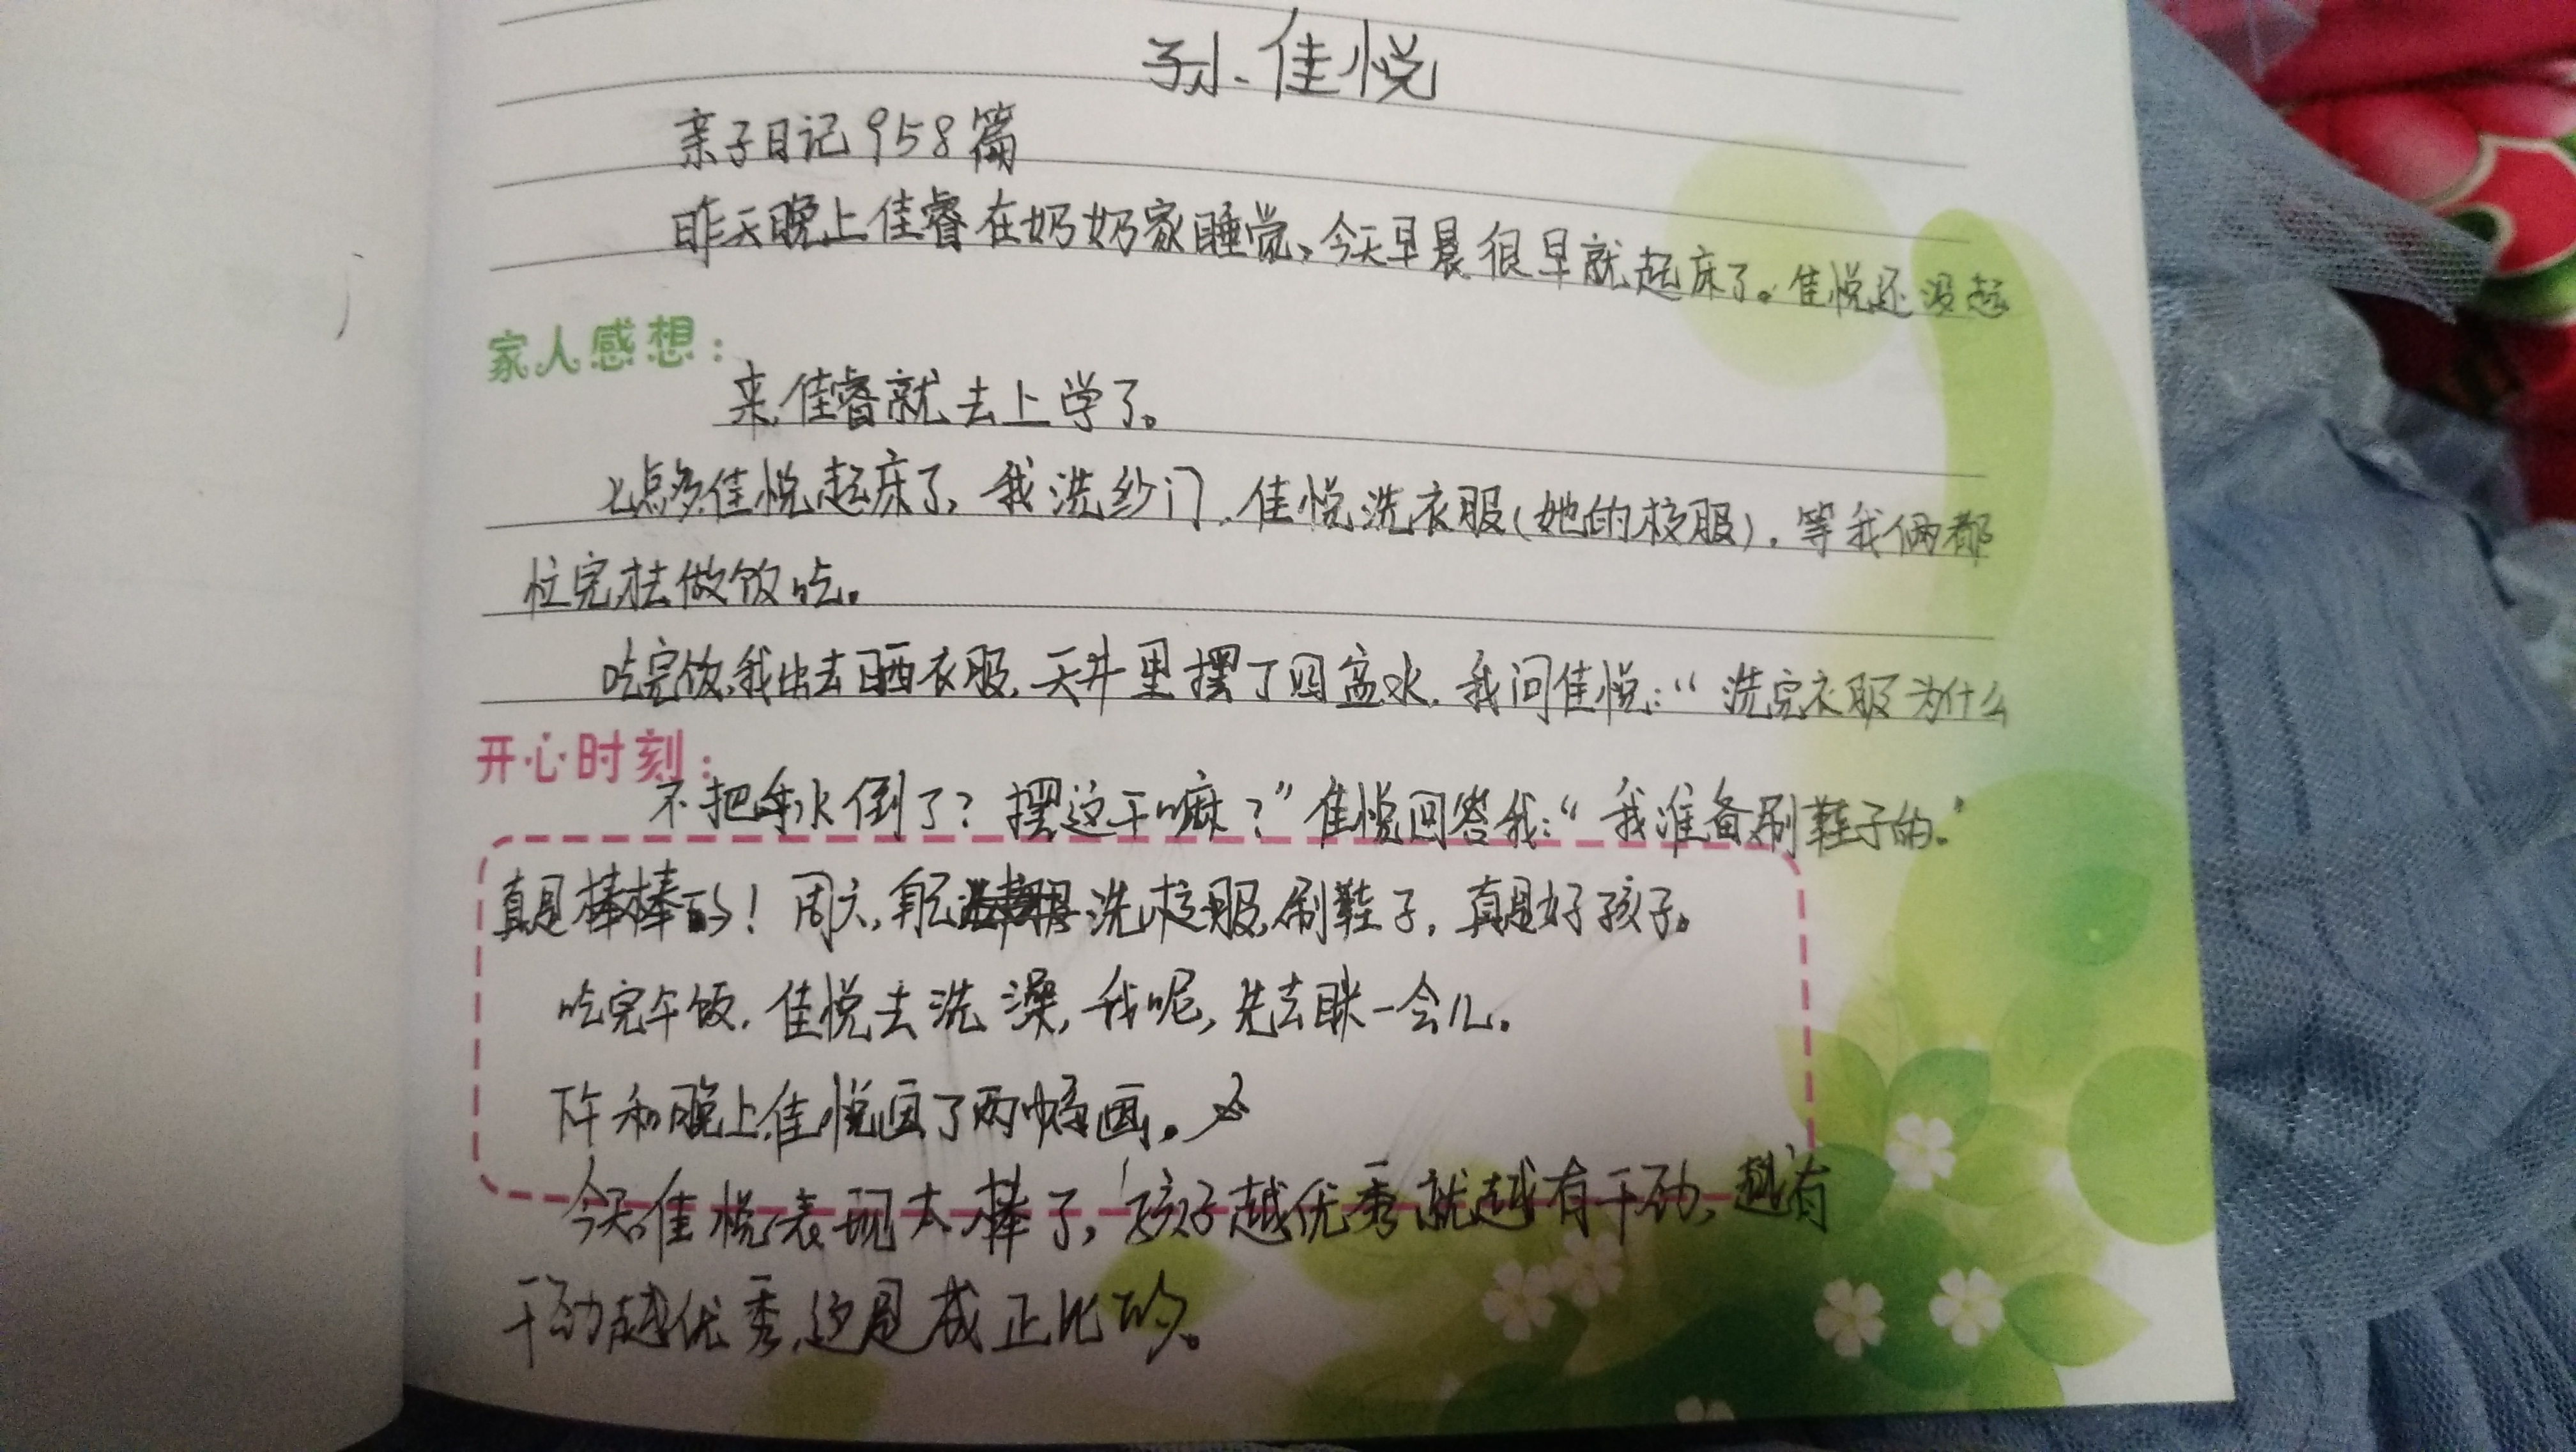 孙佳悦
亲子日记958篇
昨天晚上佳睿在奶奶家睡觉,今天早晨很早就起床了。佳悦还没起
家人感想:
来,佳睿就去上学了。
七点多,佳悦起床了,我洗纱门,佳悦洗衣服(她的校服),等我俩都
忙完才去做饭吃。
吃完饭,我出去晒衣服,天井里摆了四盆水,我问佳悦:“洗完衣服为什么
开心时刻:
不把水倒了?摆这干嘛?”佳悦回答我:“我准备刷鞋子的。”
真是棒棒的!周六,自己洗校服,刷鞋子,真是好孩子。
吃完午饭,佳悦去洗澡,我呢,先去眯一会儿。
下午和晚上,佳悦画了两幅画。
今天,佳悦表现太棒了,孩子越优秀就越有干劲,越有
干劲越优秀,这是成正比的。